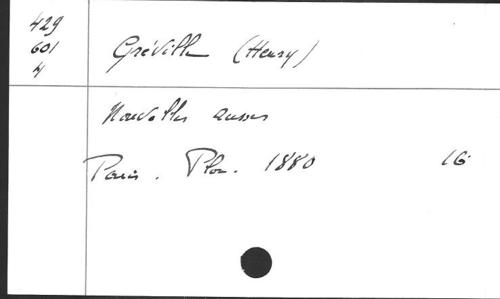 429
601
4
Gréville (Henry)
Nouvelles russes
Paris. Plon. 1880 16